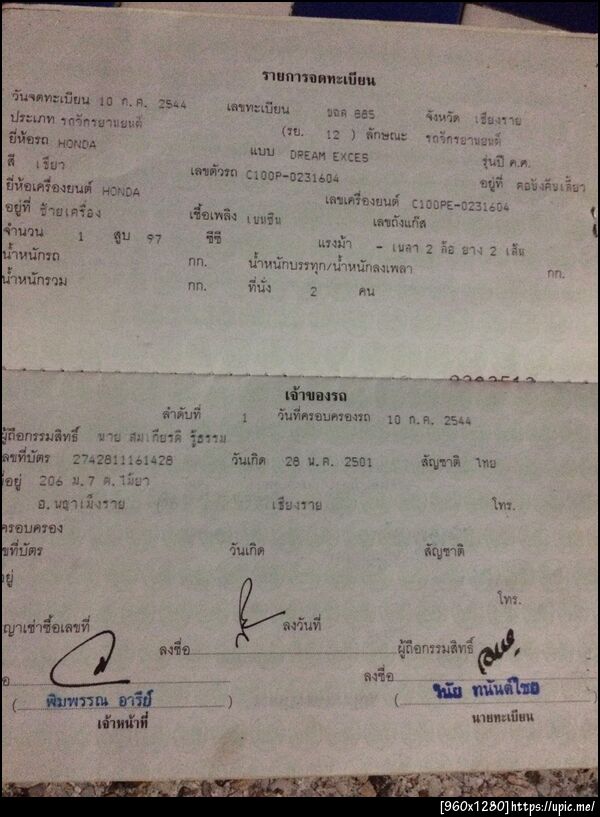 รายการจดทะเบียน
วันจดทะเบียน 10 ก.ค. 2544 เลขทะเบียน 885 จังหวัด เชียงราย
ประเภท รถจักรยานยนต์ (รย. 12 ) ลักษณะ รถจักรยานยนต์
ยี่ห้อรถ HONDA แบบ DREAM EXCES รุ่นปี ค.ศ.
สี เขียว เลขตัวรถ C100P-0231604 อยู่ที่ คอบังคับเลี้ยว
ยี่ห้อเครื่องยนต์ HONDA เลขเครื่องยนต์ C100PE-0231604
อยู่ที่ ซ้ายเครื่อง เชื้อเพลิง เบนซิน เลขถังแก๊ส
จำนวน 1 สูบ 97 ซีซี แรงม้า - เพลา 2 ล้อ ยาง 2 เส้น
น้ำหนักรถ กก. น้ำหนักบรรทุก/น้ำหนักลงเพลา กก.
น้ำหนักรวม กก. ที่นั่ง 2 คน
เจ้าของรถ
ลำดับที่ 1 วันที่ครอบครองรถ 10 ก.ค. 2544
ผู้ถือกรรมสิทธิ์ นาย สมเกียรติ รู้ธรรม
เลขที่บัตร 2742811161428 วันเกิด 28 พ.ค. 2501 สัญชาติ ไทย
ที่อยู่ 206 ม.7 ต.ไม้ยา
อ.พญาเม็งราย เชียงราย โทร.
ครอบครอง
เลขที่บัตร วันเกิด สัญชาติ
อยู่
โทร.
ญาเช่าซื้อเลขที่ ลงวันที่
ลงชื่อ ผู้ถือกรรมสิทธิ์
ลงชื่อ
(พิมพรรณ อารีย์) (วินัย ทนันต์ไชย)
เจ้าหน้าที่ นายทะเบียน
[960x1280]https://upic.me/